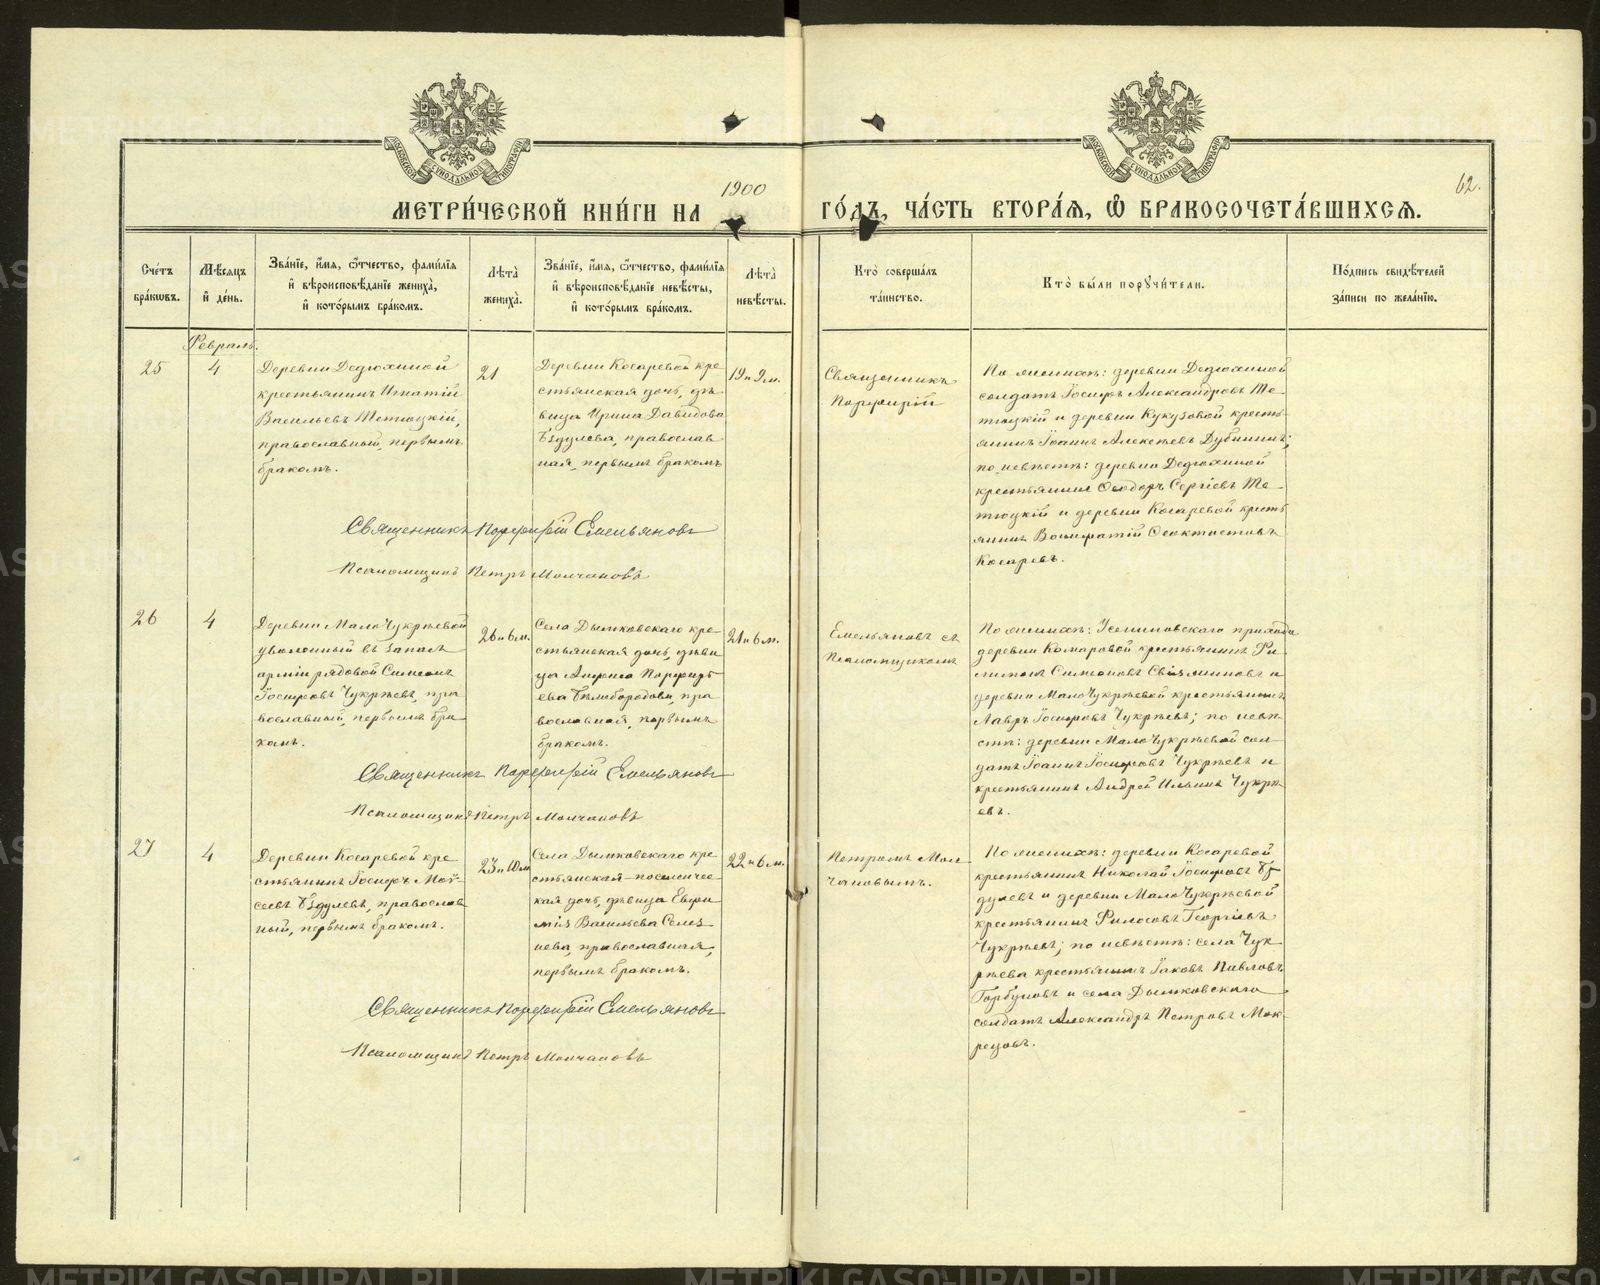 1900
62.
МЕТРИ́ЧЕСКОЙ КНИ́ГИ НА
ГО́ДЪ, ЧА́СТЬ ВТОРА́Я, Ѿ БРАКОСОЧЕТА́ВШИХСЯ.
Сче́тъ
бра́ковъ.
Мѣ́сяцъ
и҆ де́нь.
Зва́нїе, и҆́мя, ѻ҆́тчество, фами́лїя
и҆ вѣроисповѣ́данїе жениха̀,
и҆ кото́рымъ бра́комъ.
Лѣ́та
жениха̀.
Зва́нїе, и҆́мя, ѻ҆́тчество, фами́лїя
и҆ вѣроисповѣ́данїе невѣ́сты,
и҆ кото́рымъ бра́комъ.
Лѣ́та
невѣ́сты.
Кто̀ соверша́лъ
та́инство.
Кто̀ бы́ли поручи́тели.
По́дпись свидѣ́телей
за́писи по жела́нїю.
Февраль.
25
4
Деревни Дедюхиной
крестьянинъ Игнатій
Васильевъ Тетюцкій,
православный, первымъ
бракомъ.
21
Деревни Косаревой кре
стьянская дочь, дѣ
вица Ирина Давидова
Бздулева, православ
ная, первымъ бракомъ
19 и 9 м.
Священникъ
Порфирій
По женихѣ: деревни Дедюхиной
солдатъ Іосифъ Александровъ Те-
тюцкій и деревни Кукузовой кресть
янинъ Іоаннъ Алексѣевъ Дубининъ;
по невѣстѣ: деревни Дедюхиной
крестьянинъ Ѳеодоръ Сергіевъ Те-
тюцкій и деревни Косаревой кресть
янинъ Вонифатій Ѳеоктистовъ
Косаревъ.
Священникъ Порфирій Емельяновъ
Псаломщикъ Петръ Молчановъ
26
4
Деревни Мало Чукрѣевой
уволенный въ запасъ
арміи рядовой Симеонъ
Іосифовъ Чукрѣевъ, пра
вославный, первымъ бра
комъ.
26 и 6 м.
Села Дымковскаго кре
стьянская дочь, дѣви
ца Анфиса Порфирь
ева Бѣлобородова, пра
вославная, первымъ
бракомъ.
21 и 6 м.
Емельяновъ съ
псаломщикомъ
По женихѣ: Усениновскаго прихода
деревни Комаровой крестьянинъ Фи
липпъ Симеоновъ и
деревни Мало Чукрѣевой крестьянинъ
Лавръ Іосифовъ Чукрѣевъ; по невѣ
стѣ: деревни Мало Чукрѣевой сол
датъ Іоаннъ Іосифовъ Чукрѣевъ и
крестьянинъ Андрей Ильинъ Чукрѣ
евъ.
Священникъ Порфирій Емельяновъ
Псаломщикъ Петръ Молчановъ
27
4
Деревни Косаревой кре
стьянинъ Іосифъ Мої-
сеевъ Бздулевъ, православ
ный, первымъ бракомъ.
23 и 10 м
Села Дымковскаго кре
стьянская
кая дочь, дѣвица Евфи
мія Васильева Селез
нева, православная,
первымъ бракомъ.
22 и 6 м.
Петромъ Мол
чановымъ.
По женихѣ: деревни Косаревой
крестьянинъ Николай Іосифовъ Бз
дулевъ и деревни Мало Чукрѣевой
крестьянинъ Георгіевъ
Чукрѣевъ; по невѣстѣ: села Чук
рѣева крестьянинъ Іаковъ Павловъ
Горбуновъ и села Дымковскаго
солдатъ Александръ Петровъ Мок
рецовъ.
Священникъ Порфирій Емельяновъ
Псаломщикъ Петръ Молчановъ
METRIKI.GASO-URAL.RU